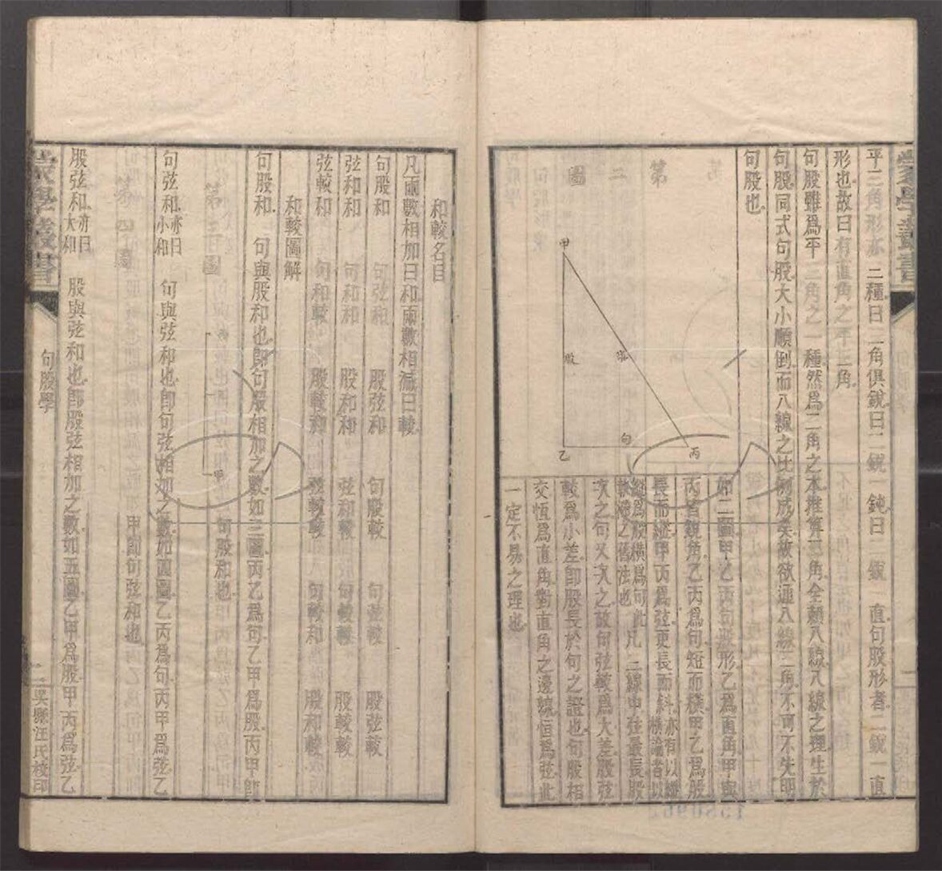 平三角形亦三種曰三角俱銳曰二銳一鈍曰二銳一直句股形者二銳一直
形也故曰有直角之平三角
句股雖爲平三角之一種然爲三角之本推算三角全賴八線八線之理生於
句股同式句股大小順倒而八線之比例成矣故欲通八線三角不可不先明
句股也
第二圖
甲
股
弦
句
乙
丙
如二圖甲乙丙句股形乙爲直角甲與
丙皆銳角乙丙爲句短而橫甲乙爲股
長而縱甲丙爲弦更長而斜亦有以縱橫論者以
縱爲股橫爲句此執隨之舊法也凡三線中弦最長股
次之句又次之故句弦較爲大差股弦
較爲小差即股長於句之證也句股相
交恆爲直角對直角之邊線恒爲弦此
一定不易之理也
蒙學叢書
和較名目
凡兩數相加曰和兩數相減曰較
句股和 句弦和 股弦和 句股較 句弦較 股弦較
弦和和 句和和 股和和 弦和較 句較較 股較較
弦較和 句和較 股較和 弦較較 句較和 股和較
和較圖解
句股和 句與股和也卽句股相加之數如三圖丙乙爲句乙甲爲股丙甲卽
句股和也
句弦和亦曰小和 句與弦和也卽句弦相加之數如四圖乙丙爲句丙甲爲弦乙
甲卽句弦和也
股弦和亦曰大和 股與弦和也卽股弦相加之數如五圖乙甲爲股甲丙爲弦乙
蒙學叢書
句股學
二
吳縣汪氏校印